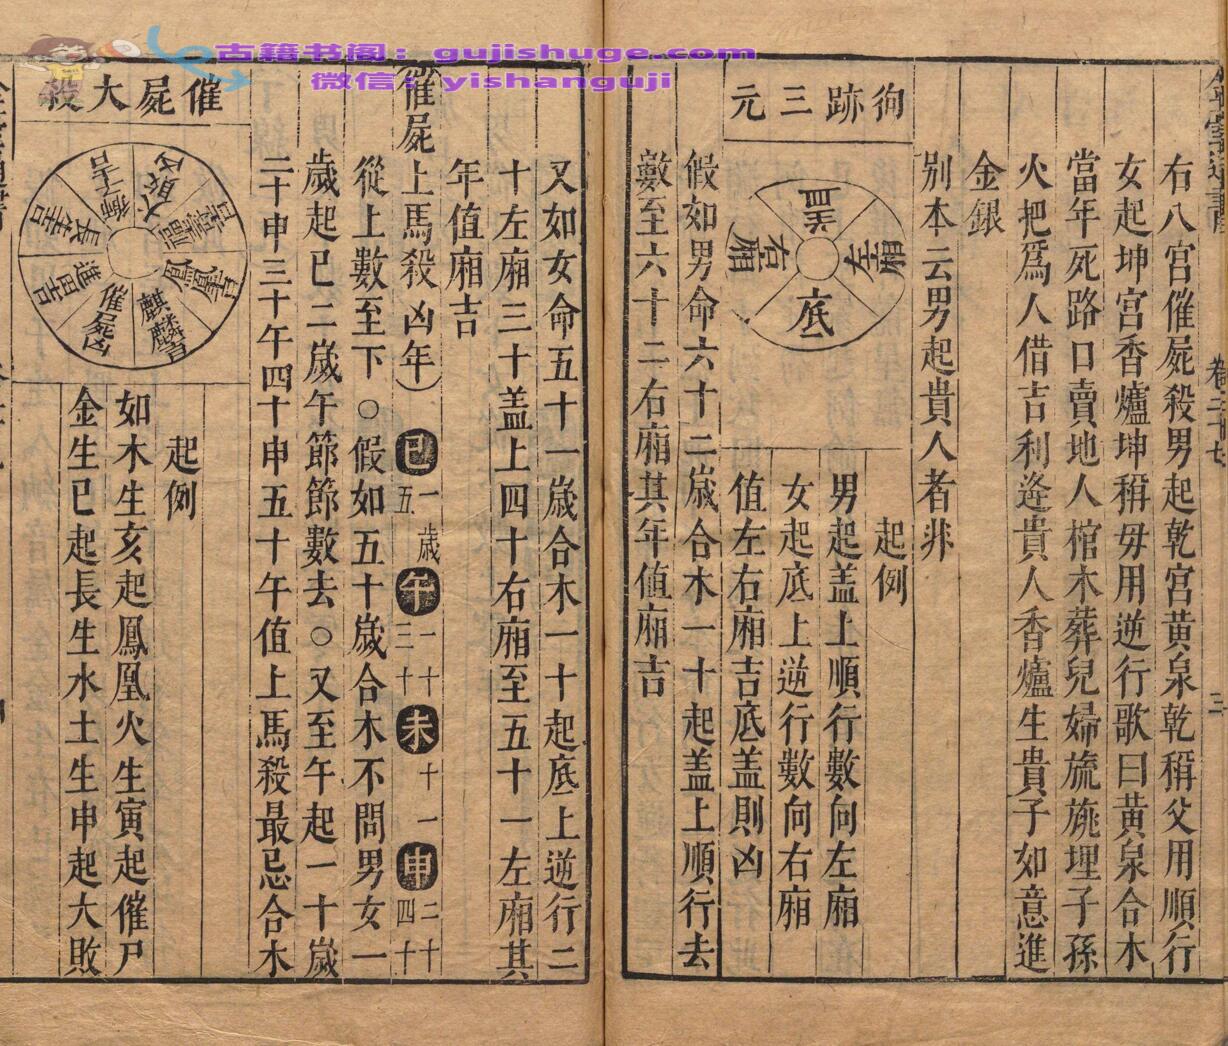 古籍书阁：gujishuge.com
微信：yishanguji
卷二十七
三
右八宮催屍殺男起乾宮黄泉乾稱父用順行
女起坤宮香爐坤稱毋用逆行歌曰黄泉合木
當年死路口賣地人棺木葬兒婦旒旐埋子孫
火把為人借吉利逄貴人香爐生貴子如意進
金銀
别本云男起貴人者非
徇跡三元
蓋
左廂
底
右廂
起例
男起盖上順行數向左廂
女起底上逆行數向右廂
值左右廂吉底盖則凶
假如男命六十二歲合木一十起盖上順行去
數至六十二右廂其年值廂吉
又如女命五十一歲合木一十起底上逆行二
十左廂三十盖上四十右廂至五十一左廂其
年值廂吉
催屍上馬殺凶年 巳 一歲 五 午 一十 三十 未 十一 申 二十 四十
從上數至下○假如五十歲合木不問男女一
歲起巳二歲午節節數去○又至午起一十歲
二十申三十午四十申五十午值上馬殺最忌合木
催屍大殺
大敗凶
鳳凰吉
麒麟吉
催屍凶
進田吉
長生吉
獅子吉
起例
如木生亥起鳳凰火生寅起催尸
金生巳起長生水土生申起大敗